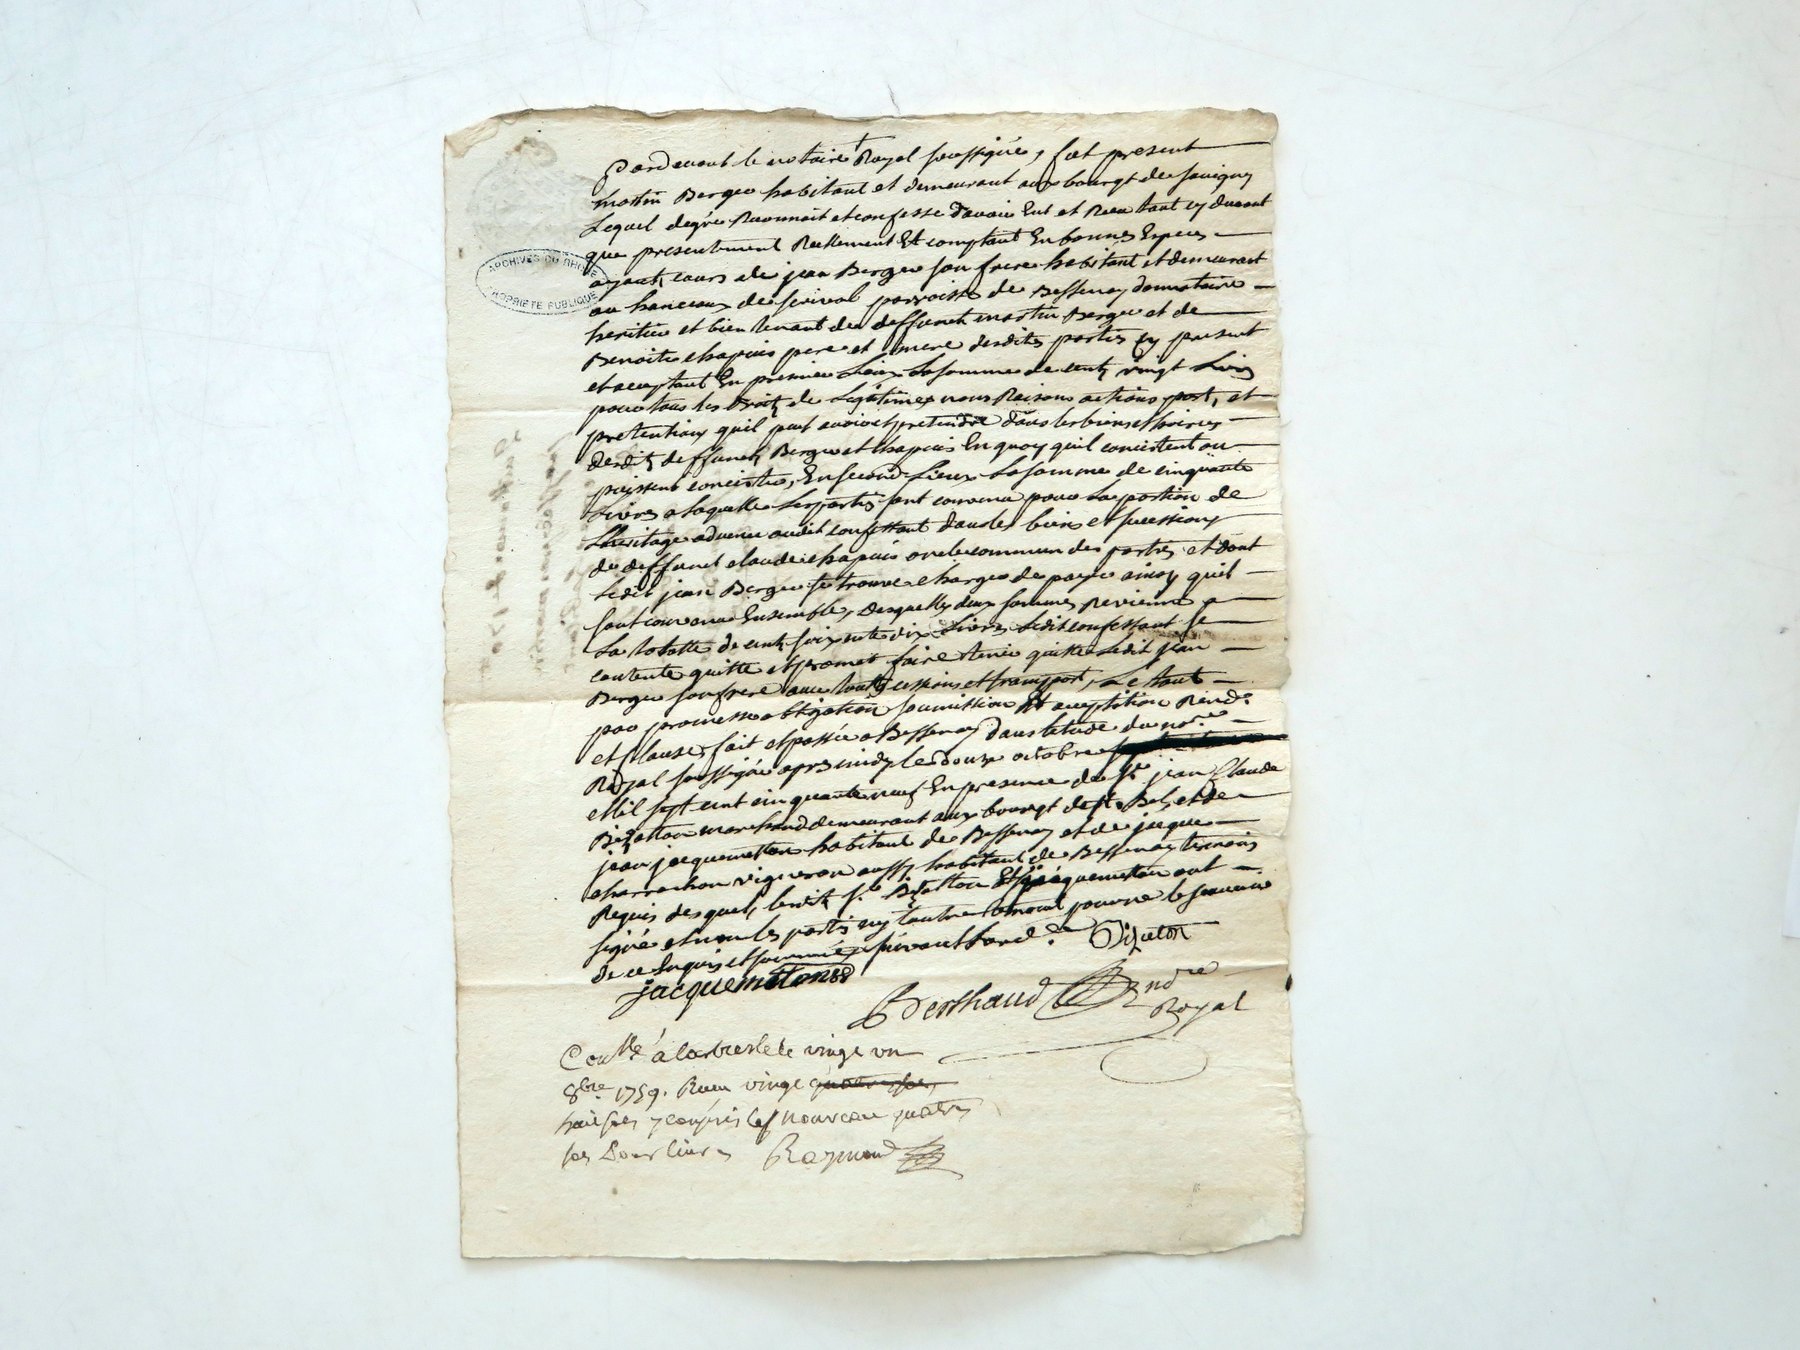 Pardevant le notaire Royal soussigné, fut present
martin Berger habitant et demeurant au bourgt de savigny
Lequel degré Reconnoit et confesse davoir Eut et Receu tant cy devant
que presentement Reellement Et comptant En bonnes Especes
ayant cours de jean Berger son frere habitant et demeurant
au hameau de parroisse de Bessenay donnataire
heritier et bien tenant de deffunct martin Berger et de
Benoite chapuis pere et mere desdites parties cy present
et acceptant En premier Lieux La somme de cent vingt Livres
pour tous les Droits de Legitimes noms Raisons actions part, et
pretentions quil peut avoir et pretendre dans les biens et hoiries
desdits deffunct Berger et chapuis En quoy quil concistent ou
puissent concister, En second Lieux La somme de cinquante
Livres a laquelle Les parties sont convenu pour La portion de
Lheritage advenu audit confessant dans les biens et successions
de deffunct claude chapuis oncle commun des parties et dont
Ledit jean Berger se trouve charger de payer ainsy quil
sont convenu Ensemble, Desquelles deux sommes Revienne a
La totalle de cent soixante dix Livres Ledit confessant se
contente quitte et promet faire tenir quitte Ledit jean
Berger son frere avec toutes cessions et transport, Le tout
par promesse obligation soumission Et
et Clause, fait et passé a Bessenay dans letude du nore
Royal soussigné apres midy le douze octobre
Mil sept cent cinquante neuf En presence de sr jean Claude
Bizatton marchand demeurant aux bourgt de st Bel, et de
jean jacquemetton habitant de Bessenay et de jacque
charrachon vigneron aussy habitant de Bessenay temoins
Requis desquels lesdits sr Bizatton Et jacquemetton ont
signé et non les parties ny lautre temoin pour ne le scavoir
de ce Enquis et sommé suivant Lord.ce Bizatton
jacquemetton
Berthaud nore
Royal
Conlle à larbresle le vingt un
8bre 1759. Receu vingt
huit sols y compris les nouveau quatre
sols pour livres Raymond
ARCHIVES DU RHONE
PROPRIETE PUBLIQUE